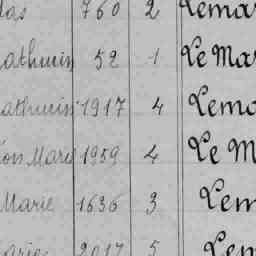 las 760 2 Lemar
athurin 52 1 Le Mar
athurin 1917 4 Lema
Marie 1959 4 Le M
Marie 1636 3 Lem
arie 2017 5 Lem